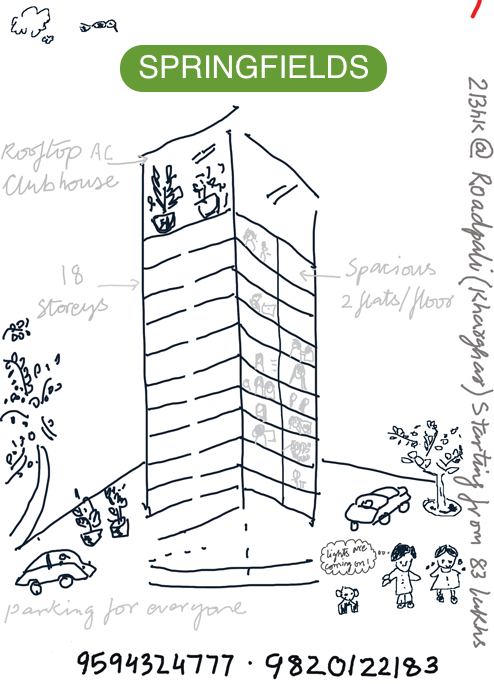 SPRINGFIELDS
Rooftop AC
Clubhouse
18
Storeys
Spacious
2 flats/floor
2Bhk @ Roadpali (Kharghar) Starting from 83 lakhs
lights are
coming on!
parking for everyone
9594324777 · 9820122183